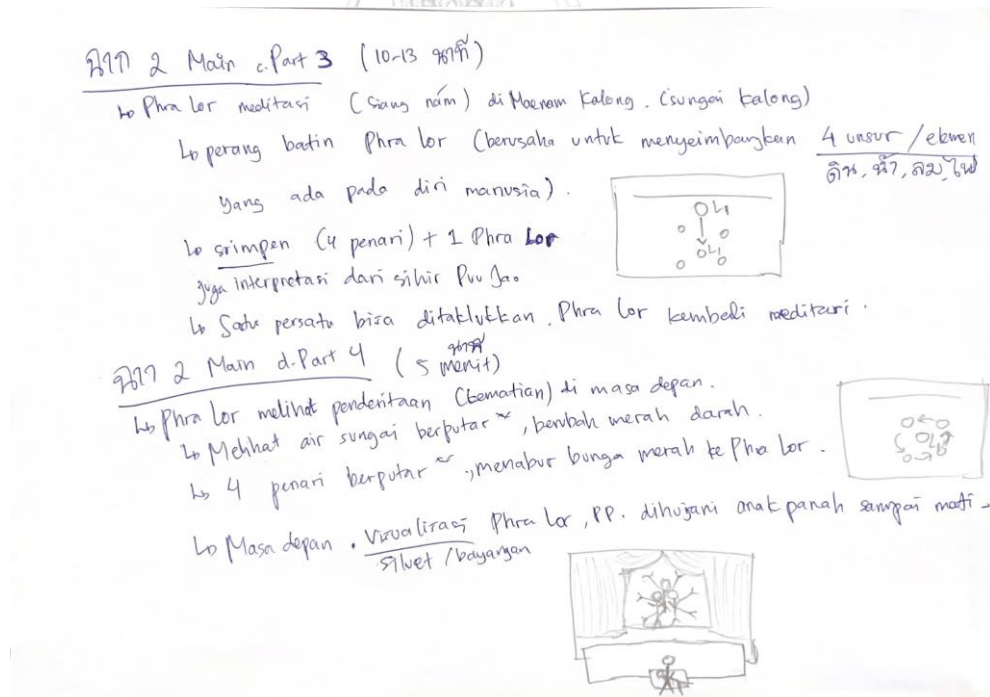 ฉาก 2 Main c. Part 3 (10-13 นาที)
↳ Phra Lor meditasi (เสี่ยงน้ำ) di Maenam Kalong. (sungai kalong)
↳ perang batin Phra Lor (berusaha untuk menyeimbangkan 4 unsur / elemen
ดิน, น้ำ, ลม, ไฟ
yang ada pada diri manusia).
↳ srimpen (4 penari) + 1 Phra Lor
juga interpretasi dari sihir Puu Jao
↳ Satu persatu bisa ditaklukkan. Phra Lor kembali meditasi.
ฉาก 2 Main d. Part 4 (5 menit)
นาที
↳ Phra Lor melihat penderitaan (kematian) di masa depan.
↳ Melihat air sungai berputar~, berubah merah darah.
↳ 4 penari berputar~, menabur bunga merah ke Phra Lor.
↳ Masa depan. Visualisasi Phra Lor, PP. dihujani anak panah sampai mati.
siluet / bayangan